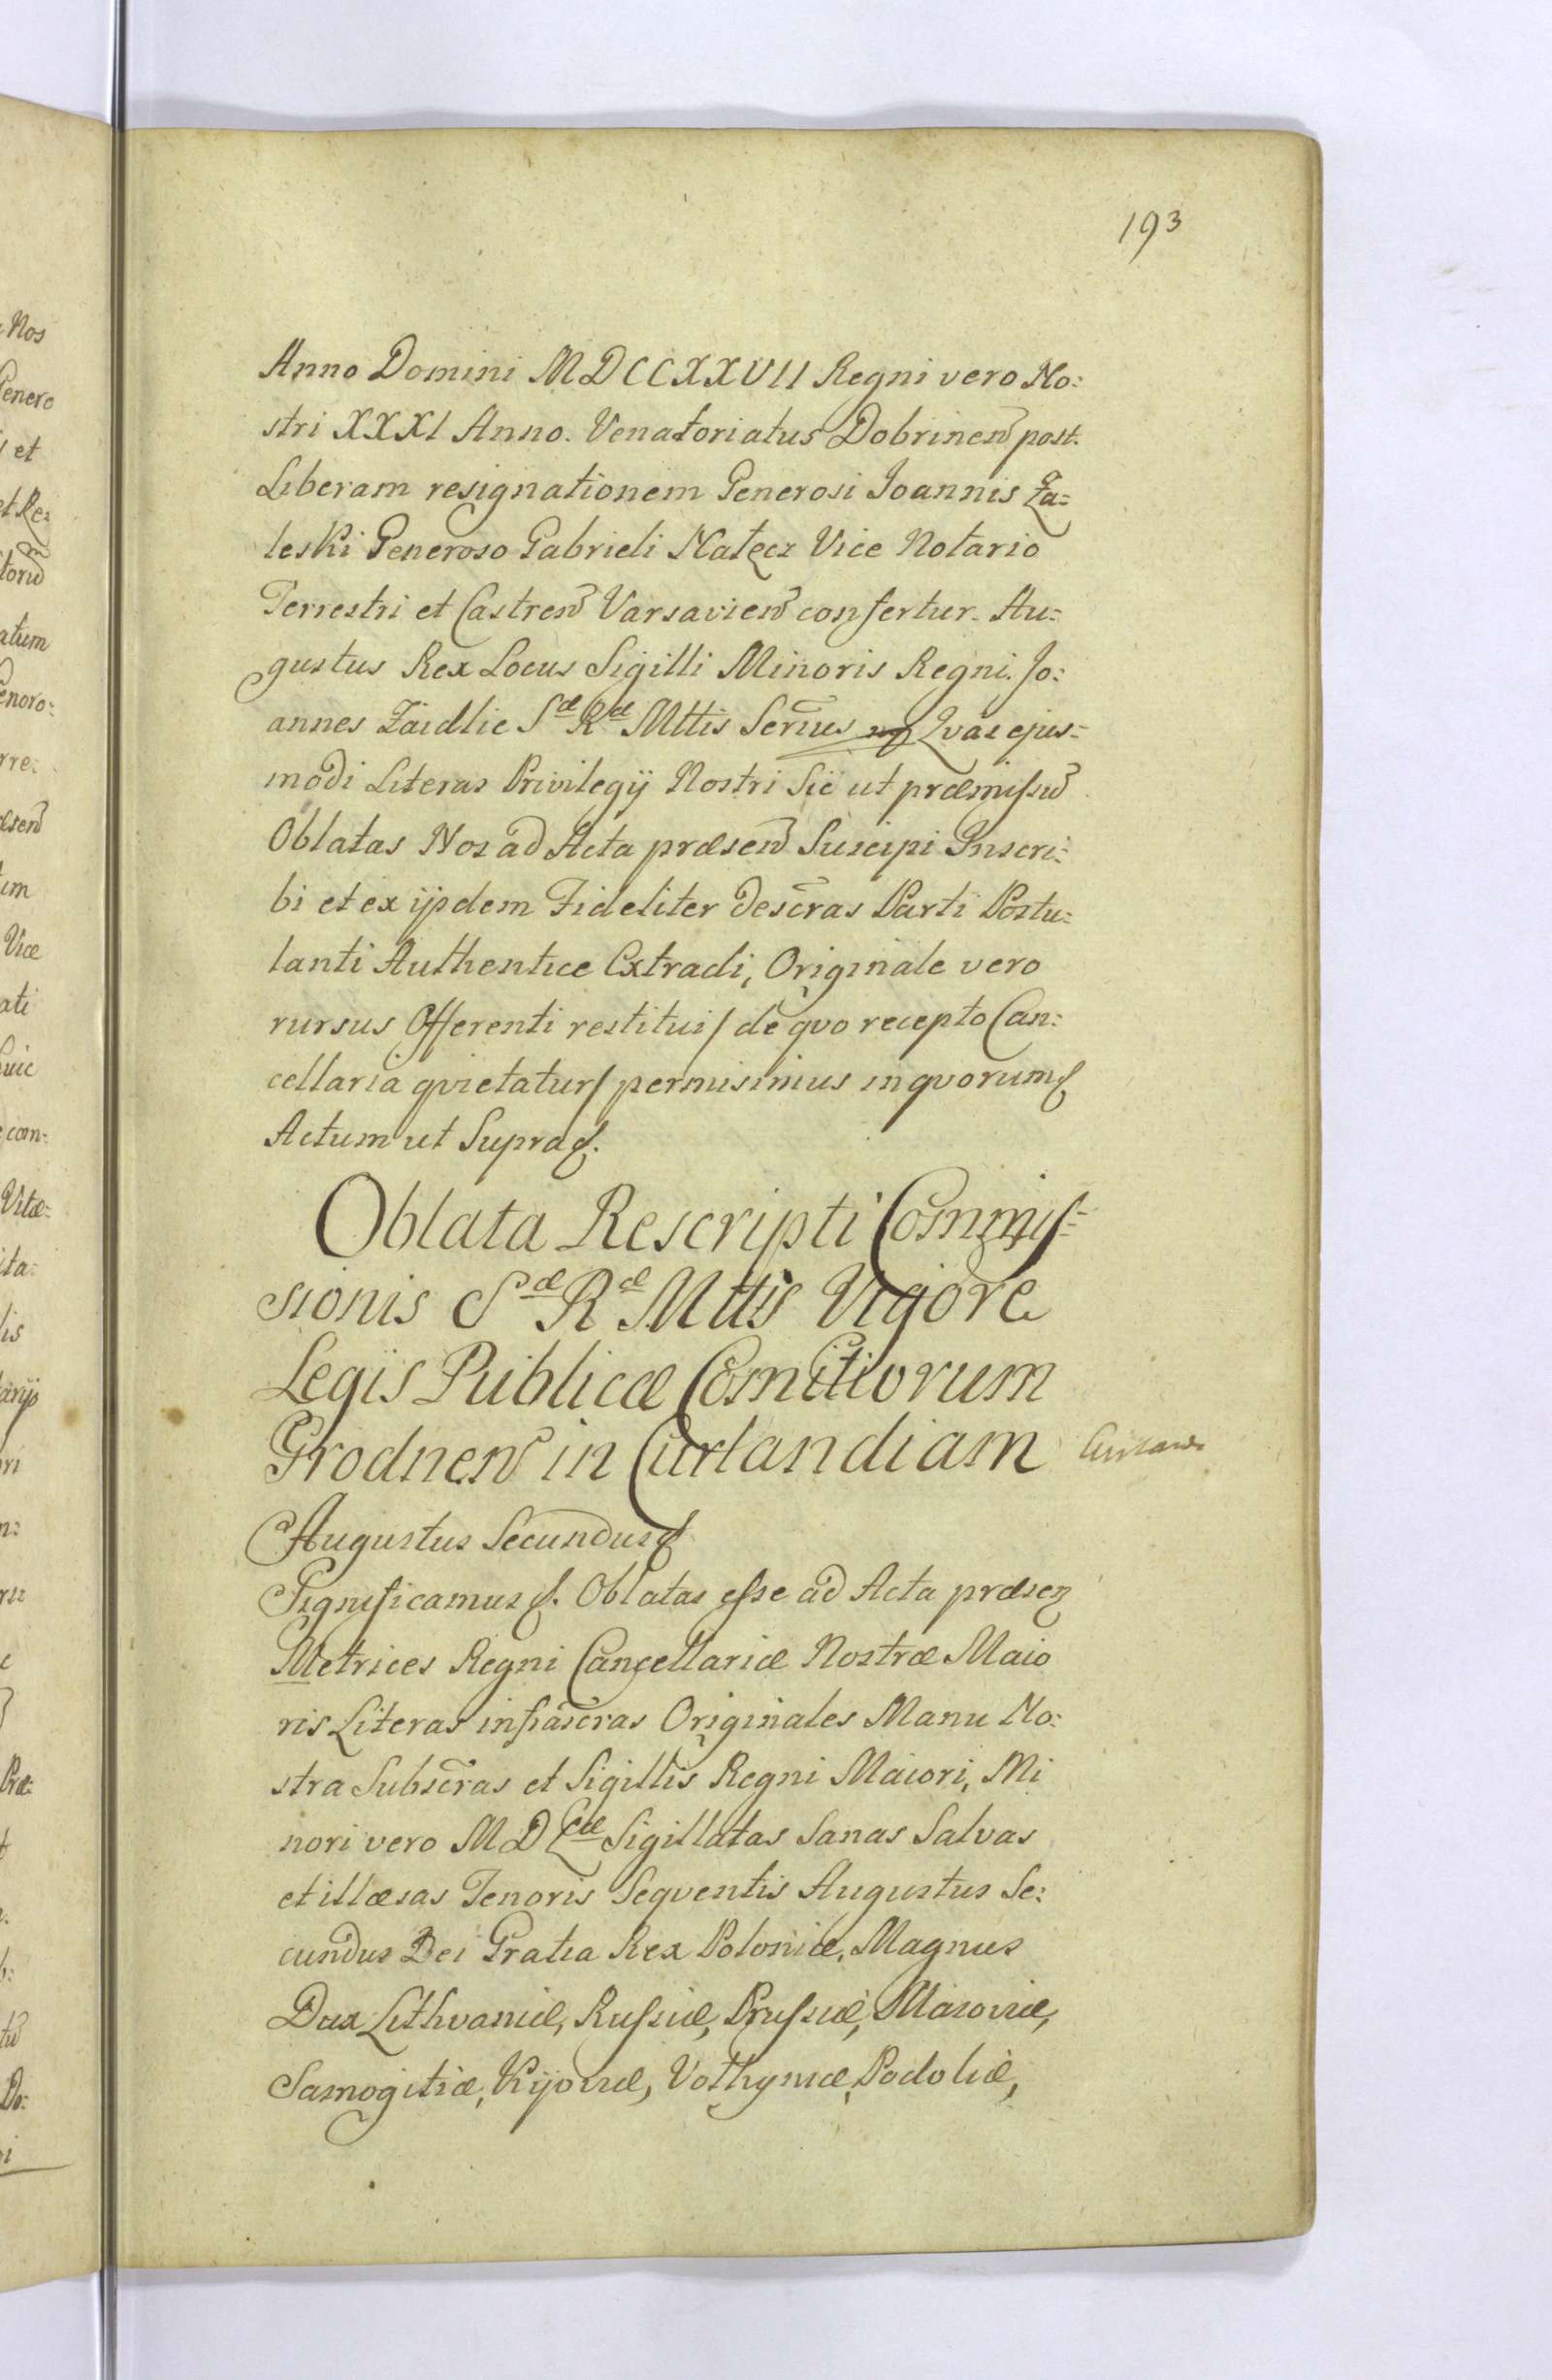 193
Anno Domini MDCCXXVII Regni vero No:
stri XXXI Anno. Venatoriatus Dobrinen post.
Liberam resignationem Generosi Joannis Za=
leski Generoso Gabrieli Natęcz Vice Notario
Terrestri et Castren Varsavien confertur. Au:
gustus Rex Locus Sigilli Minoris Regni. Jo:
annes Zaidlic Sæ Ræ Mttis Secrius mp Qvas ejus=
modi Literas Privilegij Nostri Sic ut præmissu
Oblatas Nos ad Acta præsen Suscipi Inscri:
bi et ex ijsdem Fideliter descras Parti Postu:
lanti Authentice Extradi, Originale vero
rursus Offerenti restitui / de qvo recepto Can:
cellaria qvietatur / permisimus in qvorum &
Actum ut Supra &.
Oblata Rescripti Commis=
sionis Sæ Ræ Mttis Vigore
Legis Publicæ Comitiorum
Grodnen in Curlandiam
Augustus Secundus &
Significamus &. Oblatas esse ad Acta præsen
Metrices Regni Cancellariæ Nostræ Maio
ris Literas infrascras Originales Manu No:
stra Subscras et Sigillis Regni Maiori, Mi
nori vero M D Læ Sigillatas Sanas Salvas
et illæsas Tenoris Seqventis Augustus Se:
cundus Dei Gratia Rex Poloniæ, Magnus
Dux Lithvaniæ, Russiæ, Prussiæ, Masoviæ,
Samogitiæ, Kijoviæ, Volhyniæ, Podoliæ,